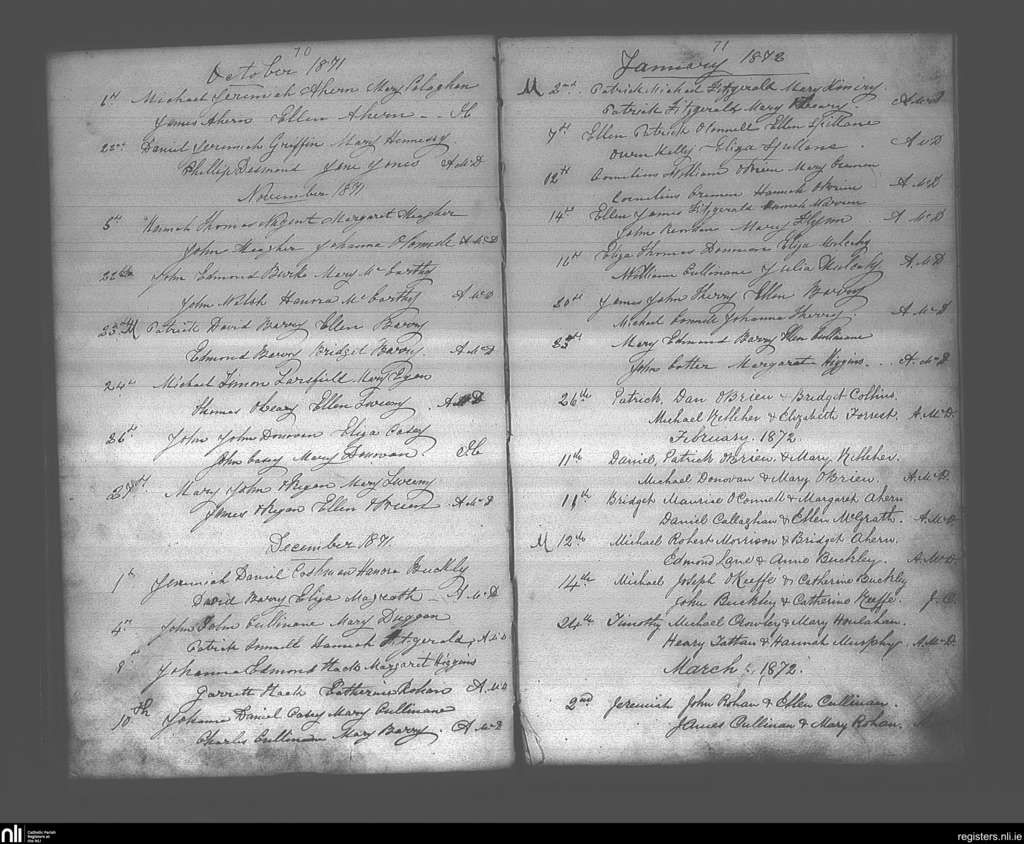 70
October 1871
1st Michael Jeremiah Ahern Mary Calaghan
James Ahern Ellen Ahern
Daniel Jeremiah Griffin Mary Hennessy
Phillip Desmond Jane Jones A McD
November 1871
5th Hannah Thomas Nagent Margaret Meagher
John Meagher Johanna O'Connell A McD
22th John Edmond Burke Mary McCarthy
John Walsh Hanora McCarthy A McD
23rd M Patrick David Barry Ellen Barry
Edmond Barry Bridget Barry A McD
24th Michael Simon Mary Egan
Thomas OLeary Ellen Twomy A McD
26th John John Donovan Eliza Casey
John Casey Mary Donovan
Mary John ORegan Mary Sweeny
James ORegan Ellen OBrien A McD
December 1871
1st Jeremiah Daniel Cashman Hanora Buckly
David Barry Eliza Magrath A McD
4th John John Cullinane Mary Duggan
Patrick Hannah Fitzgerald A McD
8th Johanna Edmond Hack Margaret Higgins
Garrett Hack Catherine Rohan A McD
10th Johanna Daniel Casey Mary Cullinane
Charles Cullinan Mary Barry. A McD
71
January 1872
M 2nd Patrick Michael Fitzgerald Mary Kiniry
Patrick Fitzgerald Mary A McD
7th Ellen Patrick OConnell Ellen Spillane
Owen Kelly Eliza A McD
12th Cornelius William OBrien Mary
Cornelius Hannah OBrien A McD
14th Ellen James Fitzgerald Hannah
John Mary Flynn A McD
16th Eliza Thomas Eliza Mulcahy
William Cullinane Julia Mulcahy A McD
20th James John Sherry Ellen Barry
Michael Connell Johanna Sherry A McD
23rd Mary Edmund Barry Ellen Cullinane
John Cotter Margaret Higgins. A. McD
26th Patrick, Dan O'Brien & Bridget Collins.
Michael Kelleher & Elizabeth Forrest. A. McD.
February. 1872.
11th Daniel, Patrick O'Brien. & Mary. Kelleher.
Michael Donovan & Mary O'Brien. A. McD.
11th Bridget Maurise O'Connell & Margaret Ahern
Daniel Callaghan & Ellen McGrath. A. McD.
M 12th Michael Robert Morrison & Bridget Ahern.
Edmond Lane & Anne Buckley. A. McD
14th Michael Joseph O'Keeffe & Catherine Buckly
John Buckley & Catherine Keeffe. J. C.
24th Timothy Michael Crowley & Mary Houlahan.
Heary Tattan & Hannah Murphy A. McD.
March, 1872.
2nd Jeremiah John Rohan & Ellen Cullinan.
James Cullinan & Mary Rohan.
nli Catholic Parish Registers at the NLI
registers.nli.ie